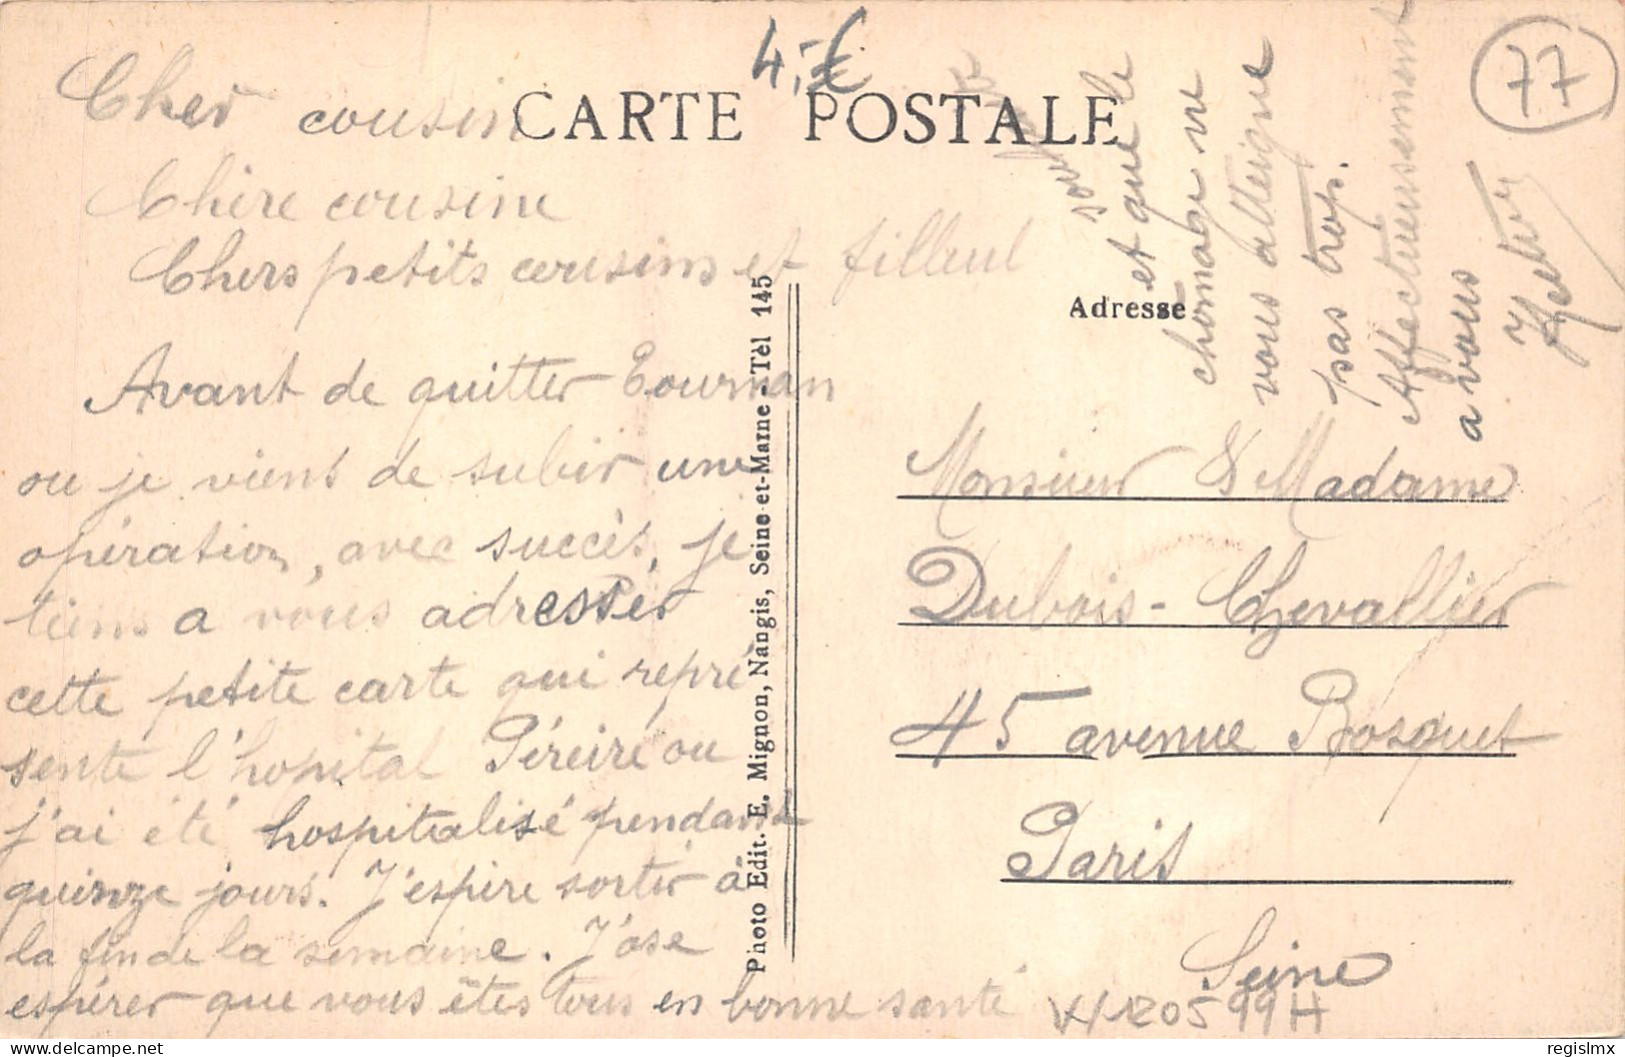 4,-€
77
CARTE POSTALE
Cher cousin
Chère cousine
Chers petits cousins et filleul
Avant de quitter Tournan
ou je viens de subir une
opération, avec succès, je
tiens a vous adresser
cette petite carte qui repré
sente l'hopital Péreire ou
j'ai été hospitalisé pendant
quinze jours. J'espère sortir à
la fin de la semaine. J'ose
espérer que vous êtes tous en bonne santé
et que le
chomage ne
vous atteigne
pas trop.
Affectueusement
a vous
Photo Edit. E. Mignon, Nangis, Seine-et-Marne - Tél 145
Adresse
Monsieur & Madame
Dubois - Chevallier
45 avenue Bosquet
Paris
Seine
120599H
delcampe.net
regislmx